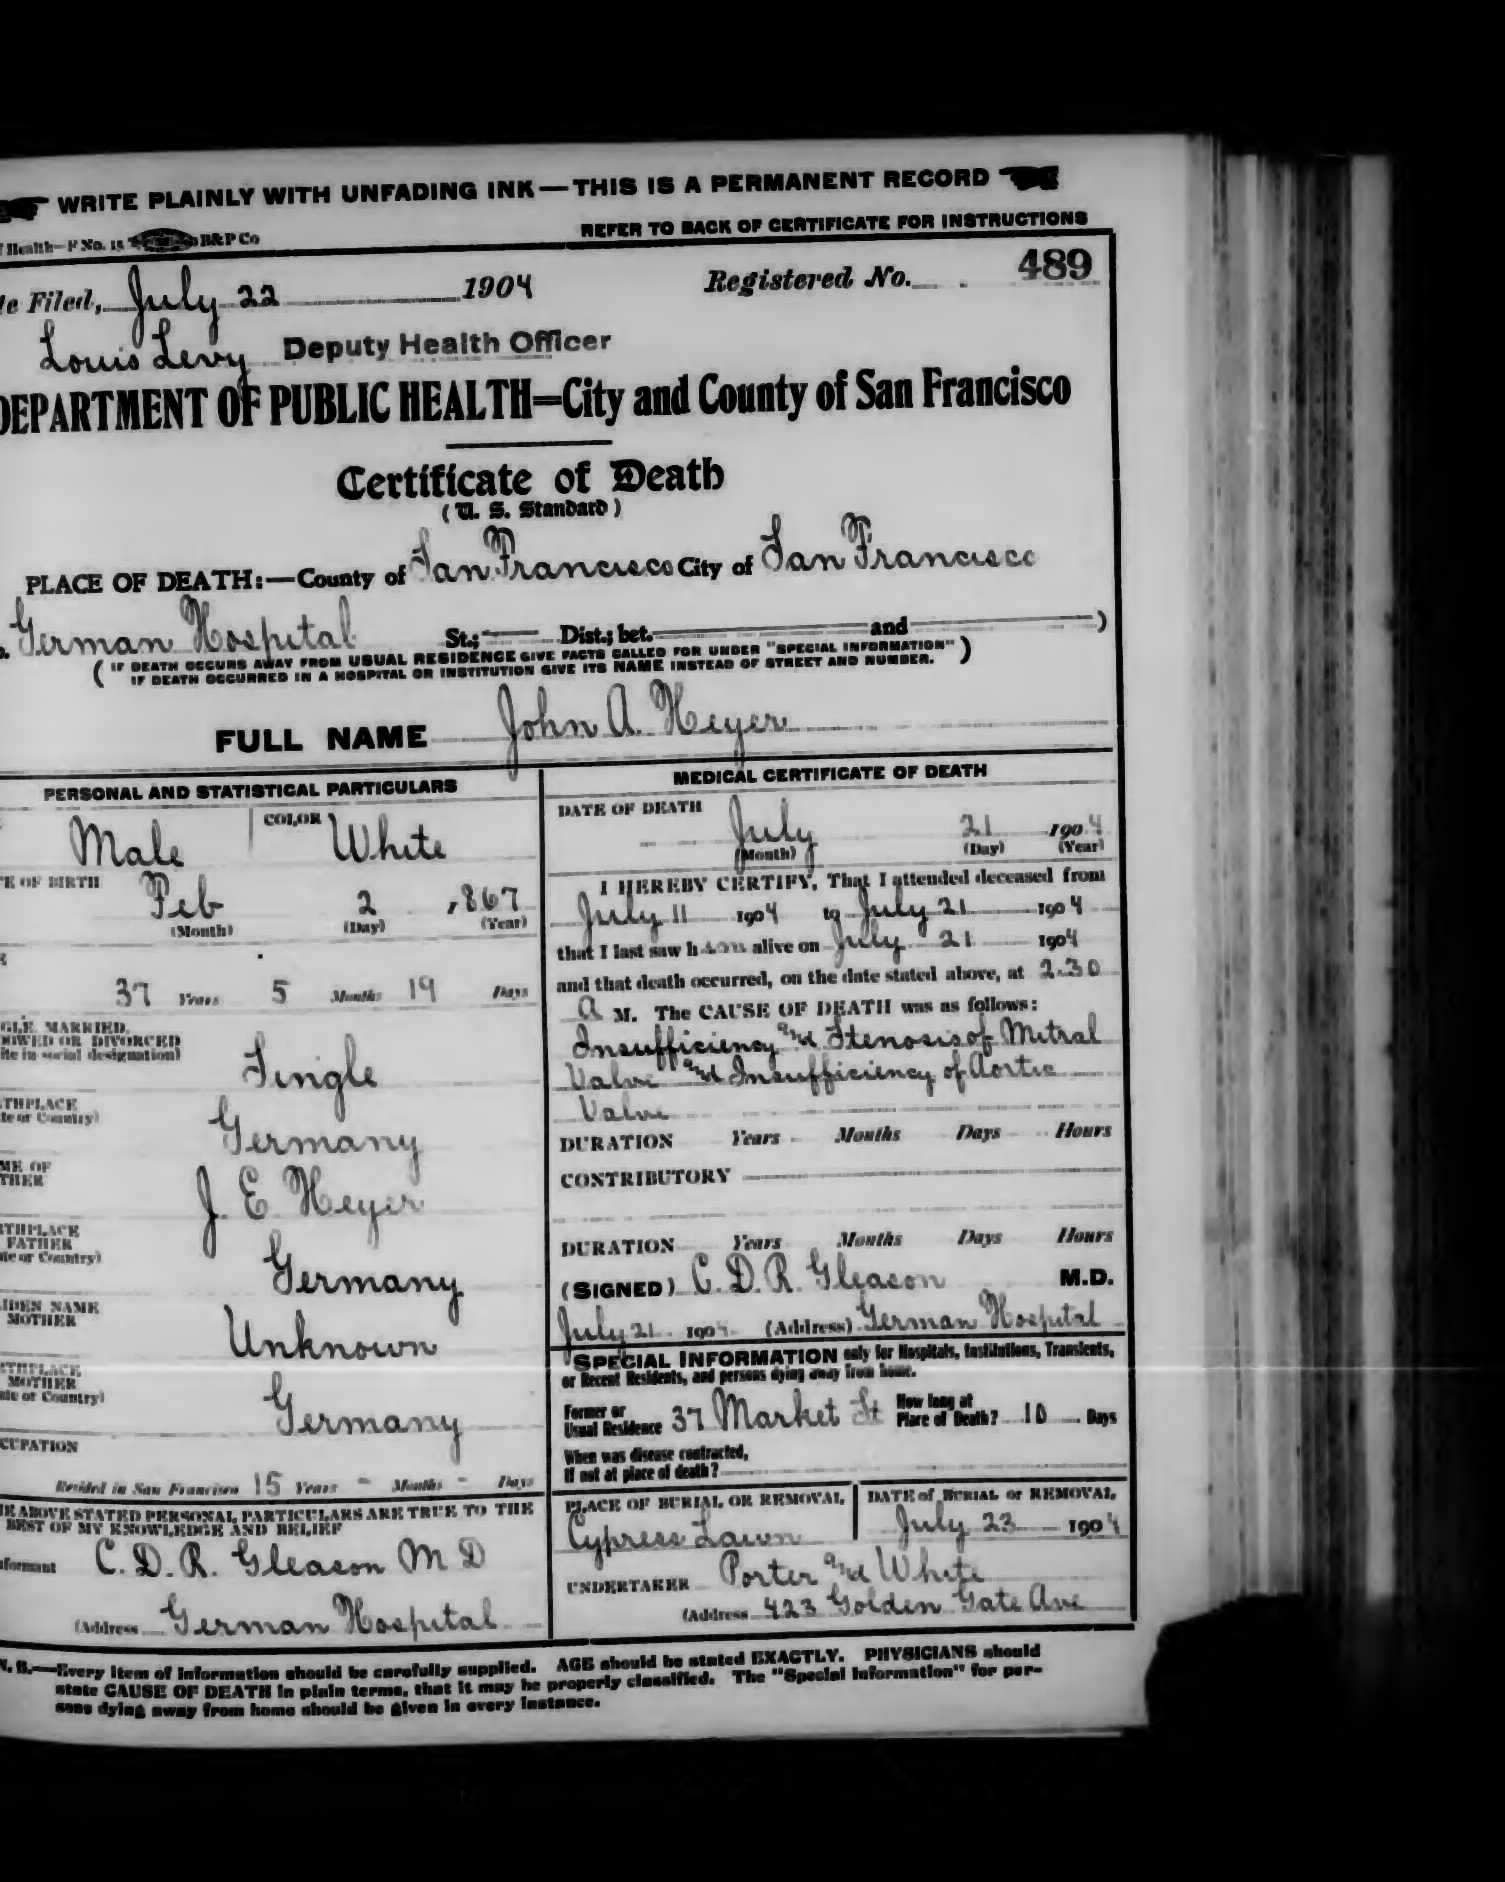 WRITE PLAINLY WITH UNFADING INK—THIS IS A PERMANENT RECORD
f Health—F No. 15 B&P Co REFER TO BACK OF CERTIFICATE FOR INSTRUCTIONS
te Filed, July 22 1904 Registered No. 489
Louis Levy Deputy Health Officer
DEPARTMENT OF PUBLIC HEALTH=City and County of San Francisco
Certificate of Death
(U. S. Standard)
PLACE OF DEATH:—County of San Francisco City of San Francisco
o. German Hospital St.; Dist.; bet. and )
( IF DEATH OCCURS AWAY FROM USUAL RESIDENCE GIVE FACTS CALLED FOR UNDER "SPECIAL INFORMATION" )
IF DEATH OCCURRED IN A HOSPITAL OR INSTITUTION GIVE ITS NAME INSTEAD OF STREET AND NUMBER.
FULL NAME John A. Heyer
PERSONAL AND STATISTICAL PARTICULARS
COLOR
Male White
TE OF BIRTH
Feb 2 , 867
(Month) (Day) (Year)
E
37 Years 5 Months 19 Days
GLE, MARRIED,
DOWED OR DIVORCED
ite in social designation)
Single
THPLACE
te or Country)
Germany
ME OF
THER
J. E. Heyer
THPLACE
FATHER
te or Country)
Germany
IDEN NAME
MOTHER
Unknown
THPLACE
MOTHER
ate or Country)
Germany
CUPATION
Resided in San Francisco 15 Years - Months - Days
E ABOVE STATED PERSONAL PARTICULARS ARE TRUE TO THE
BEST OF MY KNOWLEDGE AND BELIEF
nformant C. D. R. Gleason M D
(Address German Hospital
MEDICAL CERTIFICATE OF DEATH
DATE OF DEATH
July 21 1904
(Month) (Day) (Year)
I HEREBY CERTIFY, That I attended deceased from
July 11 1904 to July 21 1904
that I last saw him alive on July 21 1904
and that death occurred, on the date stated above, at 2.30
A M. The CAUSE OF DEATH was as follows:
Insufficiency and Stenosis of Mitral
Valve and Insufficiency of Aortic
Valve
DURATION Years Months Days Hours
CONTRIBUTORY
DURATION Years Months Days Hours
(SIGNED) C. D. R. Gleason M.D.
July 21 1904 (Address) German Hospital
SPECIAL INFORMATION only for Hospitals, Institutions, Transients,
or Recent Residents, and persons dying away from home.
Former or
Usual Residence 37 Market St How long at
Place of Death? 10 Days
When was disease contracted,
If not at place of death?
PLACE OF BURIAL OR REMOVAL
Cypress Lawn
DATE of BURIAL or REMOVAL
July 23 1904
UNDERTAKER Porter and White
(Address 423 Golden Gate Ave
N. B.—Every item of information should be carefully supplied. AGE should be stated EXACTLY. PHYSICIANS should
state CAUSE OF DEATH in plain terms, that it may be properly classified. The "Special Information" for per-
sons dying away from home should be given in every instance.